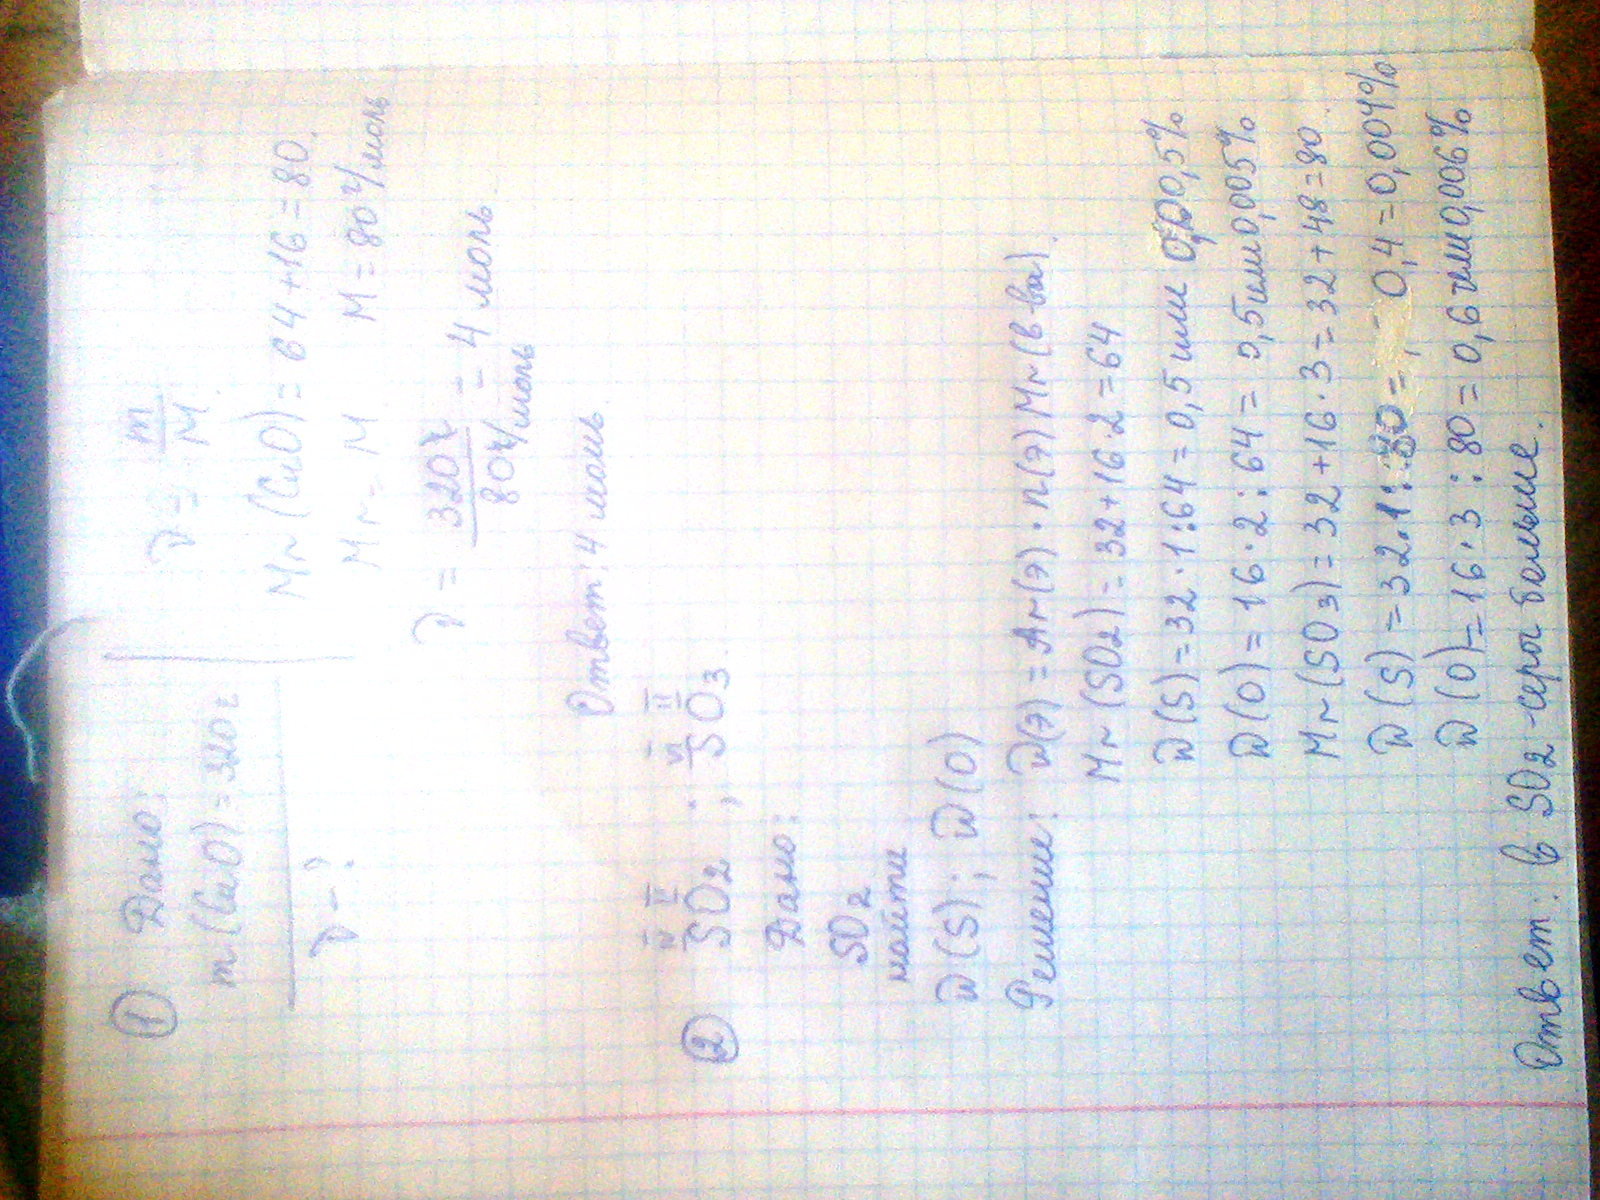 ① Дано:
m(CuO)=320г
ν-?
ν = m/M
Mr(CuO)=64+16=80.
Mr=M M=80г/моль
ν = 320г/80г/моль = 4 моль
Ответ: 4 моль.
② IV II SO2 ; VI II SO3.
Дано:
SO2
найти
W(S); W(O)
Решение: W(Э)=Ar(Э)·n(Э) Mr(в-ва).
Mr(SO2)=32+16·2=64
W(S)=32·1:64=0,5 или 0,00,5%
W(O)=16·2:64=0,5 или 0,005%
Mr(SO3)=32+16·3=32+48=80.
W(S)=32·1:80= 0,4=0,004%
W(O)=16·3:80=0,6 или 0,006%
Ответ: в SO2-серы больше.